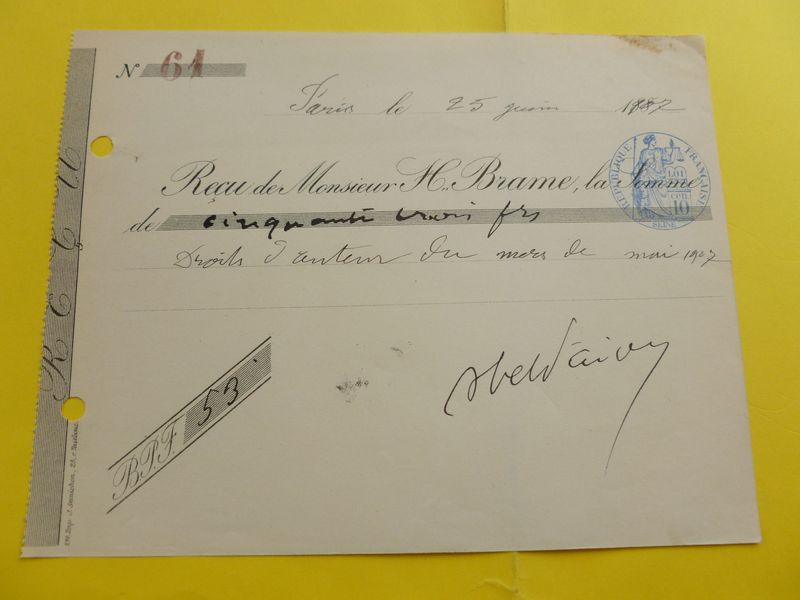 N 61
Paris le 25 juin 1907
Reçu de Monsieur H. Brame, la Somme
de cinquante trois frs
Droits d'auteur du mois de mai 1907
B.P.F. 53
REÇU
RÉPUBLIQUE FRANÇAISE
LOI
10
SEINE